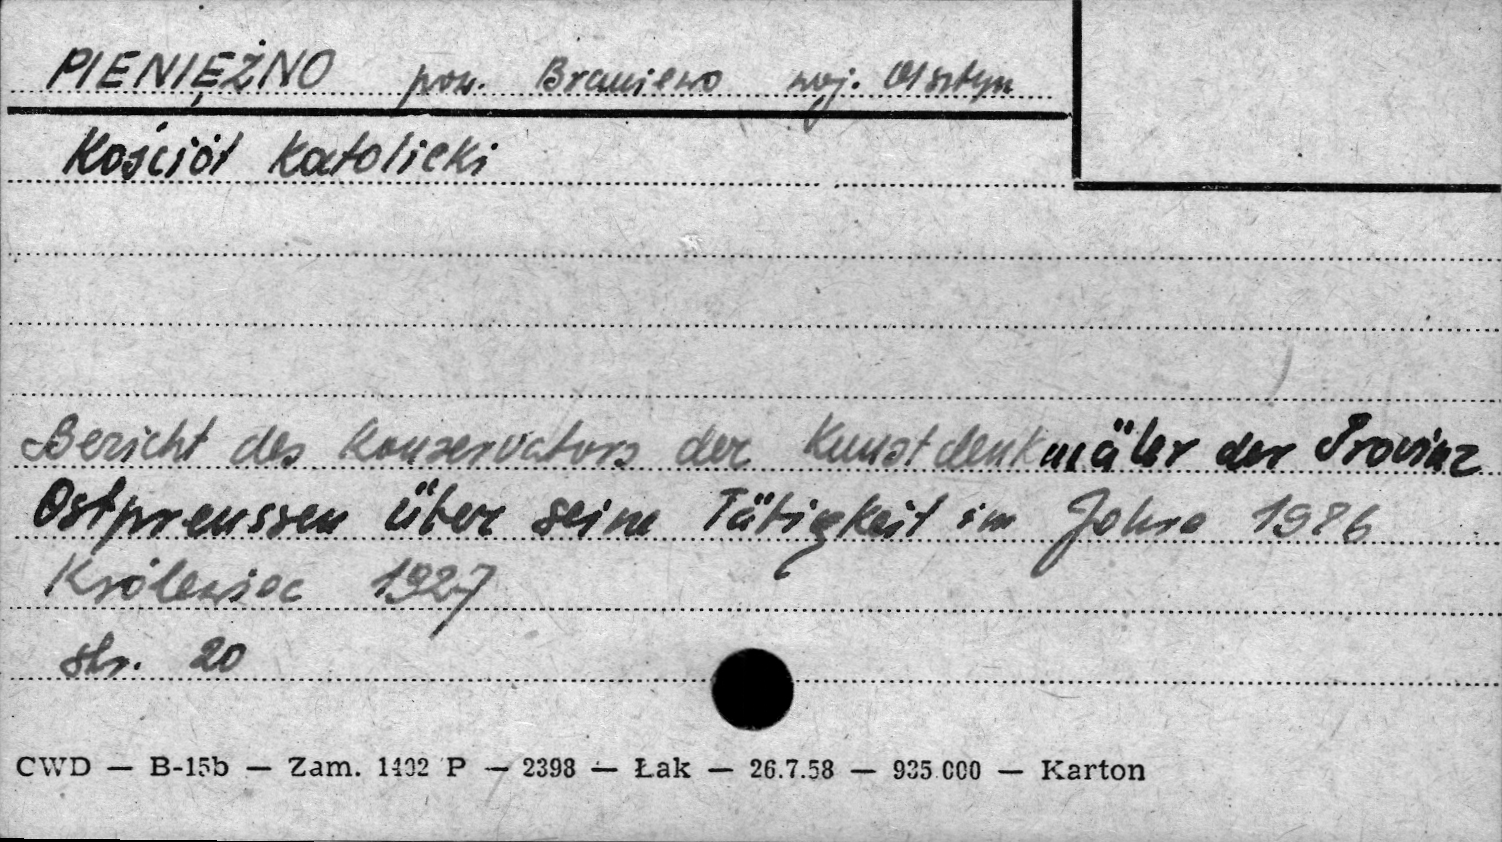 PIENIĘŻNO pow. Braniewo woj. Olsztyn
Kościół Katolicki
Bericht des Konservators der Kunstdenkmäler der Provinz
Ostpreussen über seine Tätigkeit im Jahre 1926
Królewiec 1927
str. 20
CWD — B-15b — Zam. 1402 P — 2398 — Łak — 26.7.58 — 935.000 — Karton